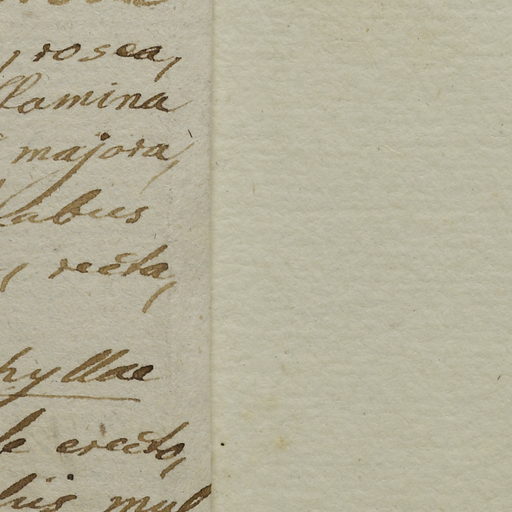 , rosea,
lamina
majora,
labus
, recta,
hyllae
le erecto,
liis mul